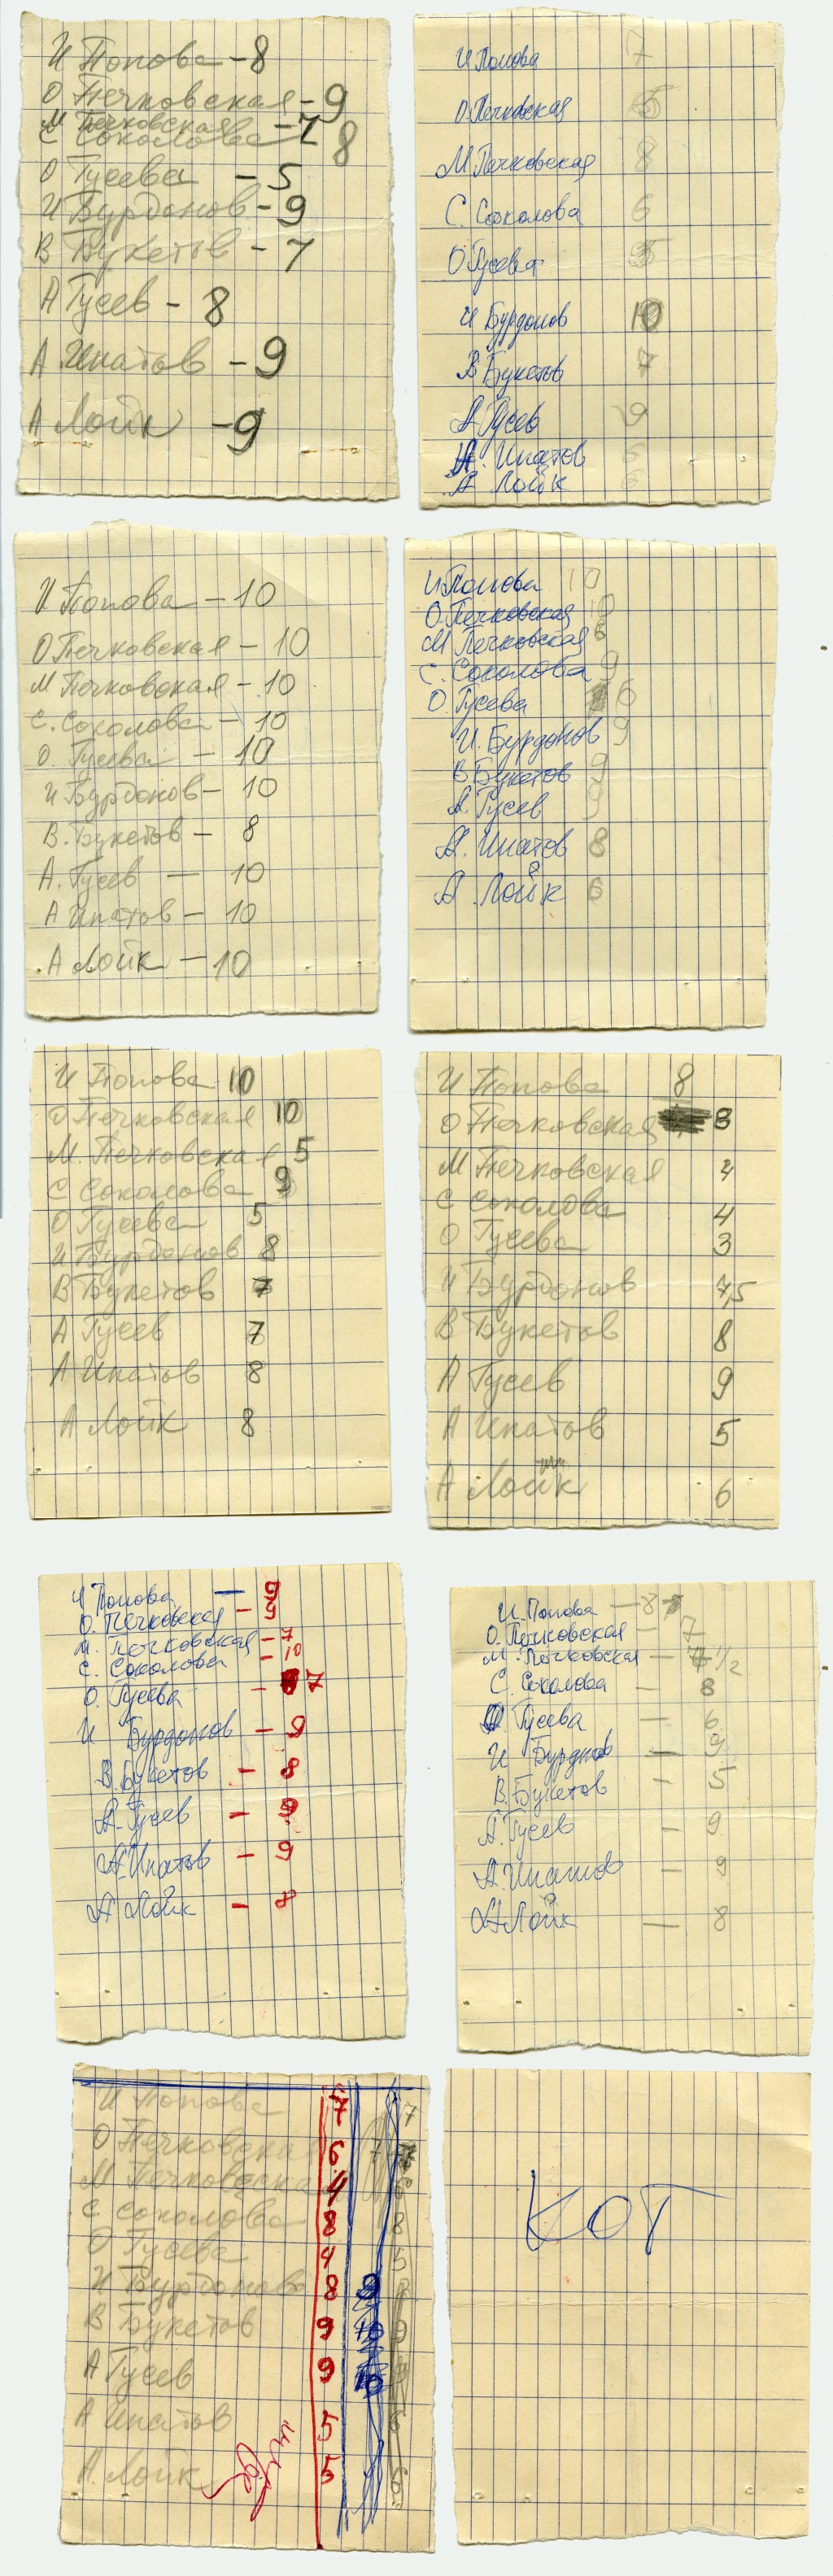 И Попова - 8
О Печковская - 9
М Печковская - 7
С Соколова 8
О Гусева - 5
И Бурдонов - 9
В Букетов - 7
А Гусев - 8
А Ипатов - 9
А Лойк - 9
И Попова 7
О Печковская
М Печковская 8
С. Соколова 6
О Гусева
И Бурдонов 10
В Букетов 7
А Гусев 9
А. Ипатов 6
А Лойк 6
И Попова - 10
О Печковская - 10
М Печковская - 10
С. Соколова - 10
О. Гусева - 10
И Бурдонов - 10
В. Букетов - 8
А. Гусев - 10
А Ипатов - 10
А Лойк - 10
И Попова 10
О Печковская 10
М Печковская 6
С. Соколова 9
О. Гусева 6
И. Бурдонов 9
В Букетов 9
А. Гусев 9
А. Ипатов 8
А Лойк 6
И Попова 10
О Печковская 10
М. Печковская 5
С Соколова 9
О Гусева 5
И Бурдонов 8
В Букетов 7
А Гусев 7
А Ипатов 8
А Лойк 8
И Попова 8
О Печковская 8
М Печковская
С Соколова 4
О Гусева 3
И Бурдонов 7,5
В Букетов 8
А Гусев 9
А Ипатов 5
А Лойк 6
И Попова - 9
О. Печковская -
М. Печковская - 7
С. Соколова - 10
О. Гусева - 7
И Бурдонов - 9
В. Букетов - 8
А. Гусев - 9
А. Ипатов - 9
А Лойк - 8
И. Попова - 8
О. Печковская - 7
М. Печковская - 7 1/2
С. Соколова - 8
О Гусева - 6
И Бурднов - 9
В. Букетов - 5
А. Гусев - 9
А. Ипатов - 9
А Лойк - 8
И Попова 7 7
О Печковская 6 7
М Печковская 4
С Соколова 8 8
О Гусева 4 5
И Бурдонов 8
В Букетов 9 10 9
А Гусев 9 10
А Ипатов 5 6
А. Лойк 5 6
КОТ